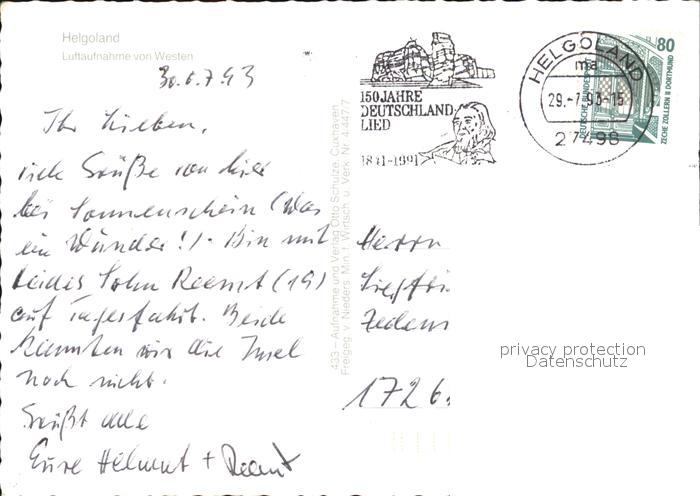 Helgoland
Luftaufnahme von Westen
30.6.7.93
Ihr Lieben,
viele Grüße von hier
bei Sonnenschein (Was
ein Wunder!). Bin mit
Sohn Reemt (19)
auf Tagesfahrt. Beide
kannten wir die Insel
noch nicht.
Grüßt alle
Eure Helmut + Reemt
433 – Aufnahme und Verlag Otto Schulze, Cuxhaven
Freigeg. v. Nieders. Min. f. Wirtsch. u. Verk. Nr.
150 JAHRE
DEUTSCHLAND
LIED
1841-1991
HELGOLAND
ma
29.-7.93-15
27498
80
DEUTSCHE BUNDESPOST
ZECHE ZOLLERN II DORTMUND
Herrn
1726
privacy protection
Datenschutz